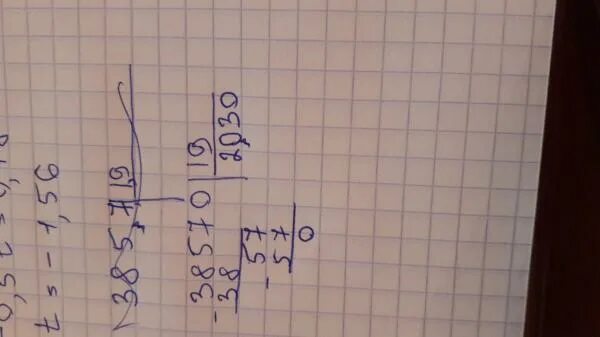 t = -1,56
385,7 19
-38570 19
38 2030
57
- 57
0